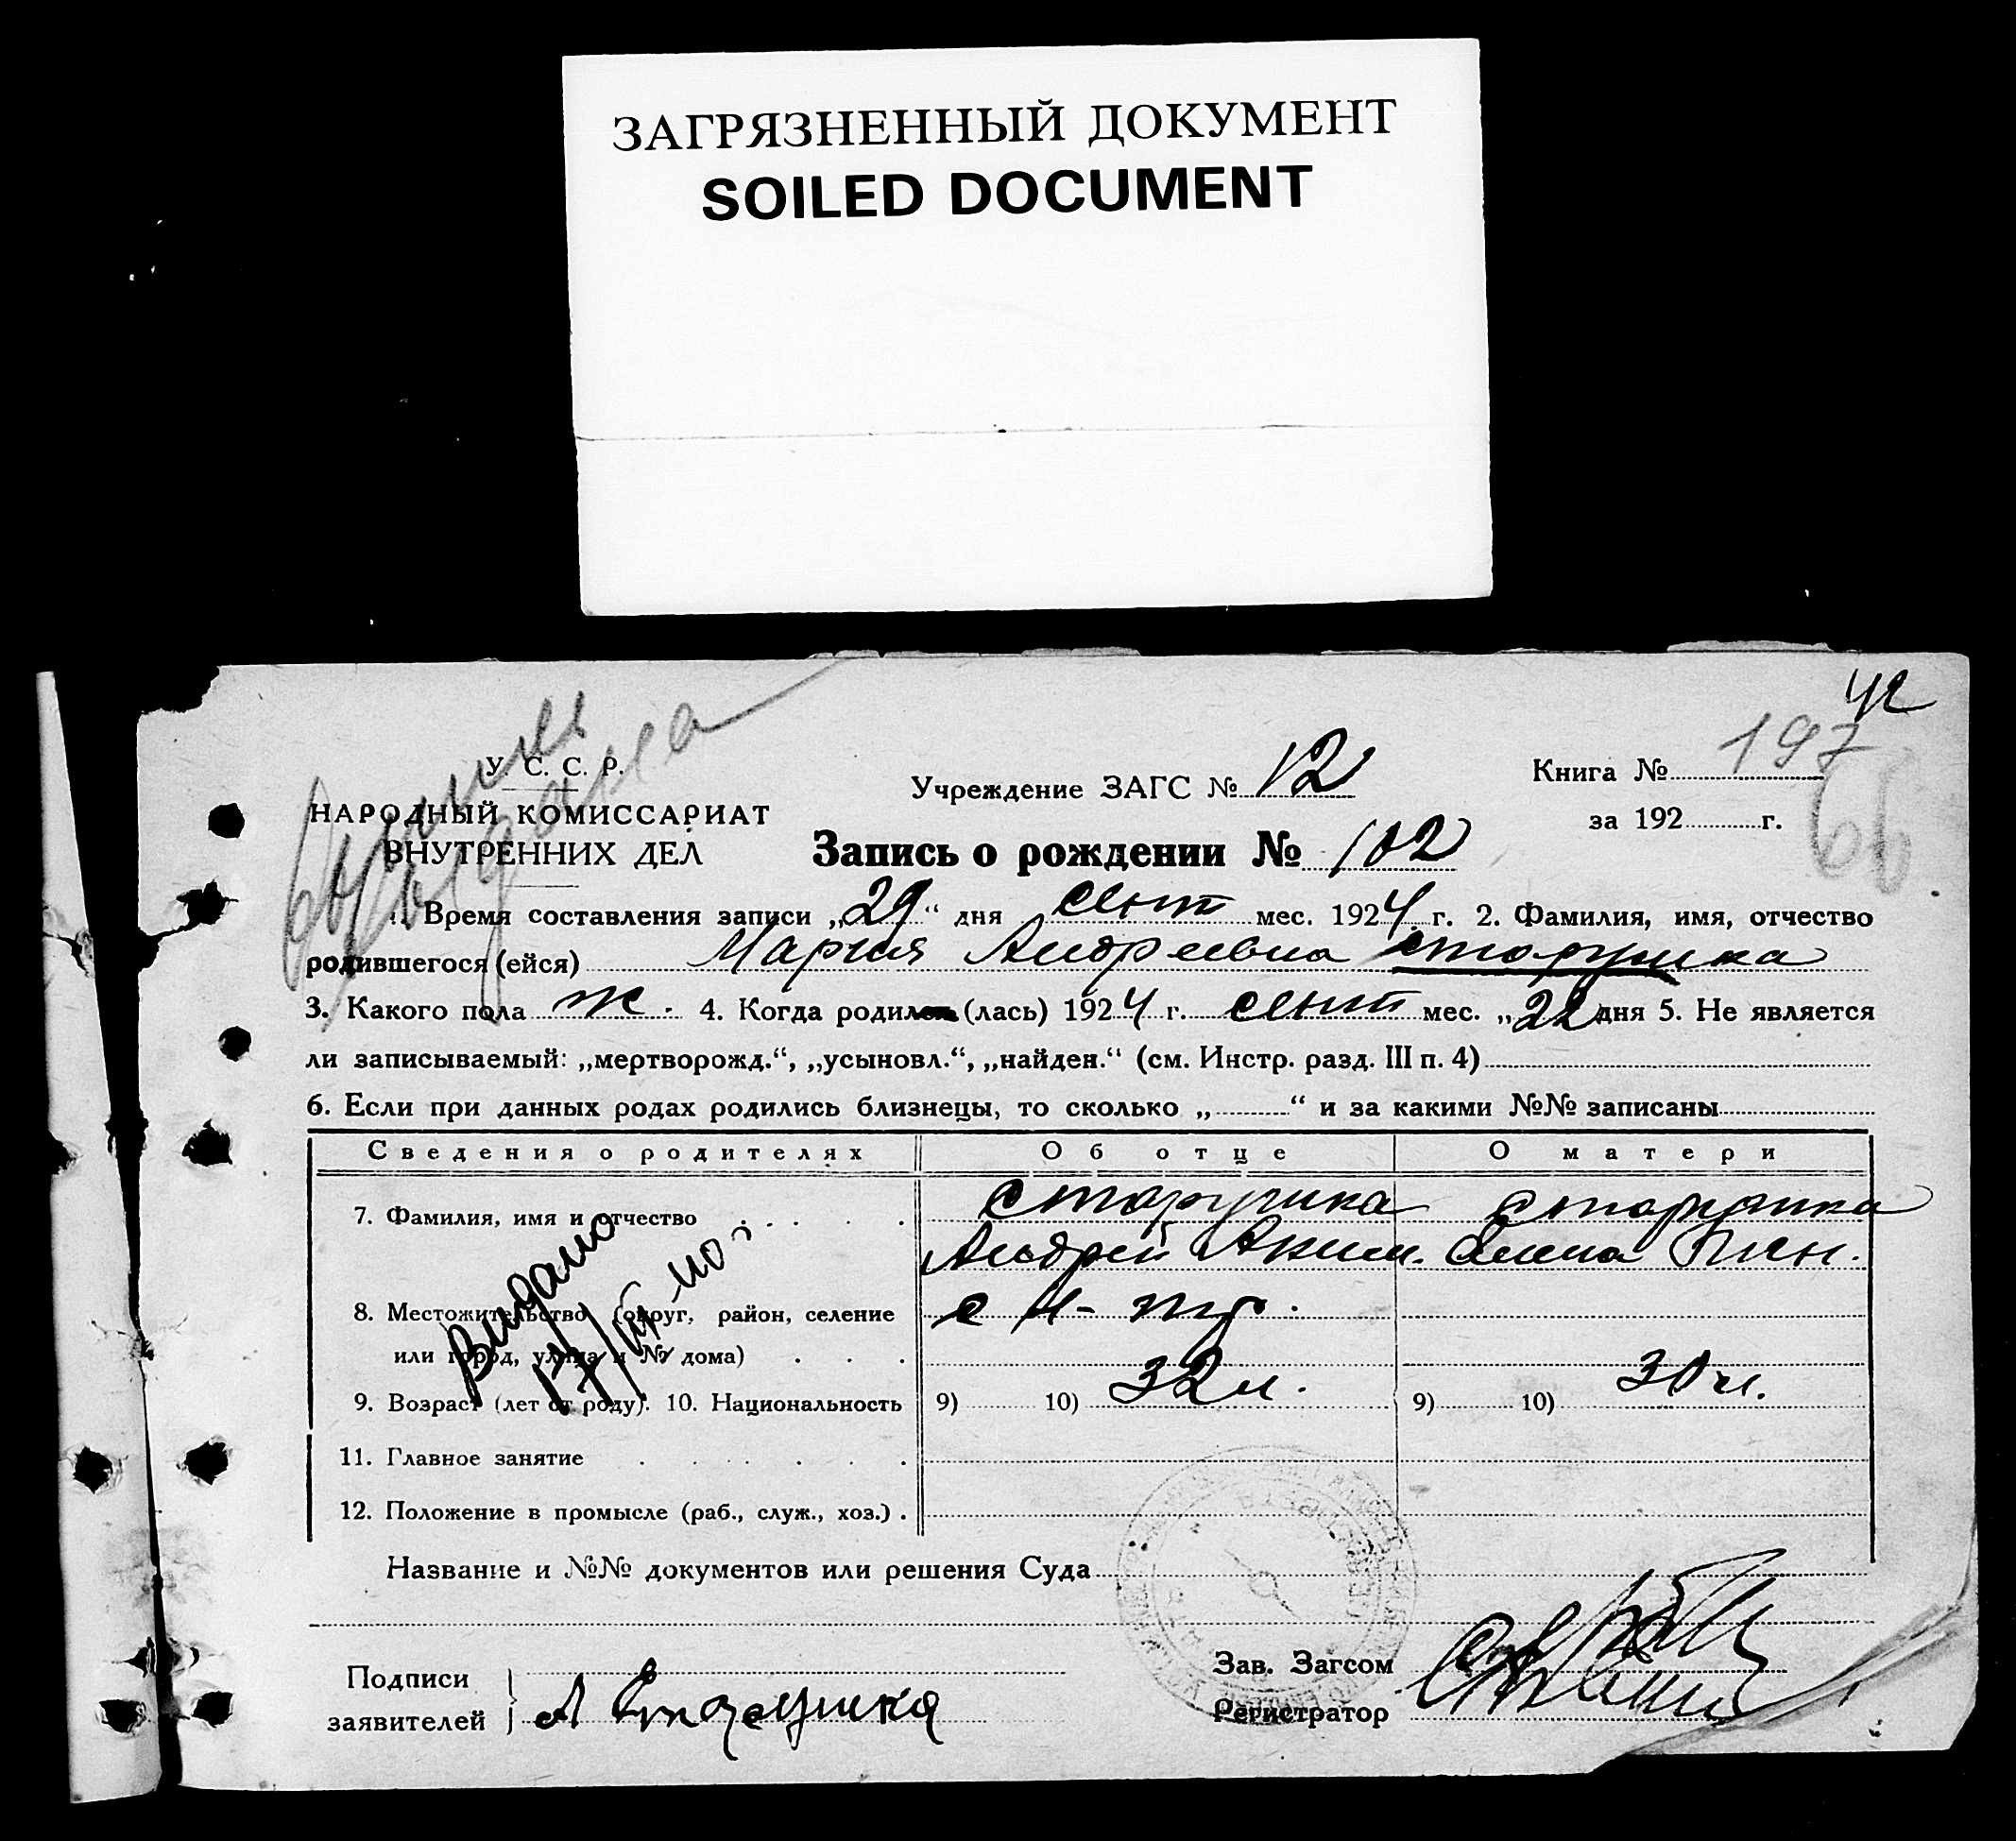 ЗАГРЯЗНЕННЫЙ ДОКУМЕНТ
SOILED DOCUMENT
42
197
66
У. С. С. Р.
НАРОДНЫЙ КОМИССАРИАТ
ВНУТРЕННИХ ДЕЛ
Учреждение ЗАГС № 12
Книга №
за 192 г.
Запись о рождении № 102
1. Время составления записи „29“ дня сент мес. 1924 г. 2. Фамилия, имя, отчество
родившегося (ейся) Мария Андреевна Старушка
3. Какого пола ж. 4. Когда родился (лась) 1924 г. сент мес. „22 дня 5. Не является
ли записываемый: „мертворожд.“, „усыновл.“, „найден.“ (см. Инстр. разд. III п. 4)
6. Если при данных родах родились близнецы, то сколько „ “ и за какими №№ записаны
Сведения о родителях Об отце О матери
7. Фамилия, имя и отчество Старушка Старушка
Андрей Аким.
8. Местожительство (округ, район, селение
или город, улица и № дома)
9. Возраст (лет от роду). 10. Национальность 9) 10) 32 л. 9) 10) 30 л.
11. Главное занятие
12. Положение в промысле (раб., служ., хоз.)
Видано
Название и №№ документов или решения Суда
Подписи
заявителей А Старушка
Зав. Загсом
Регистратор